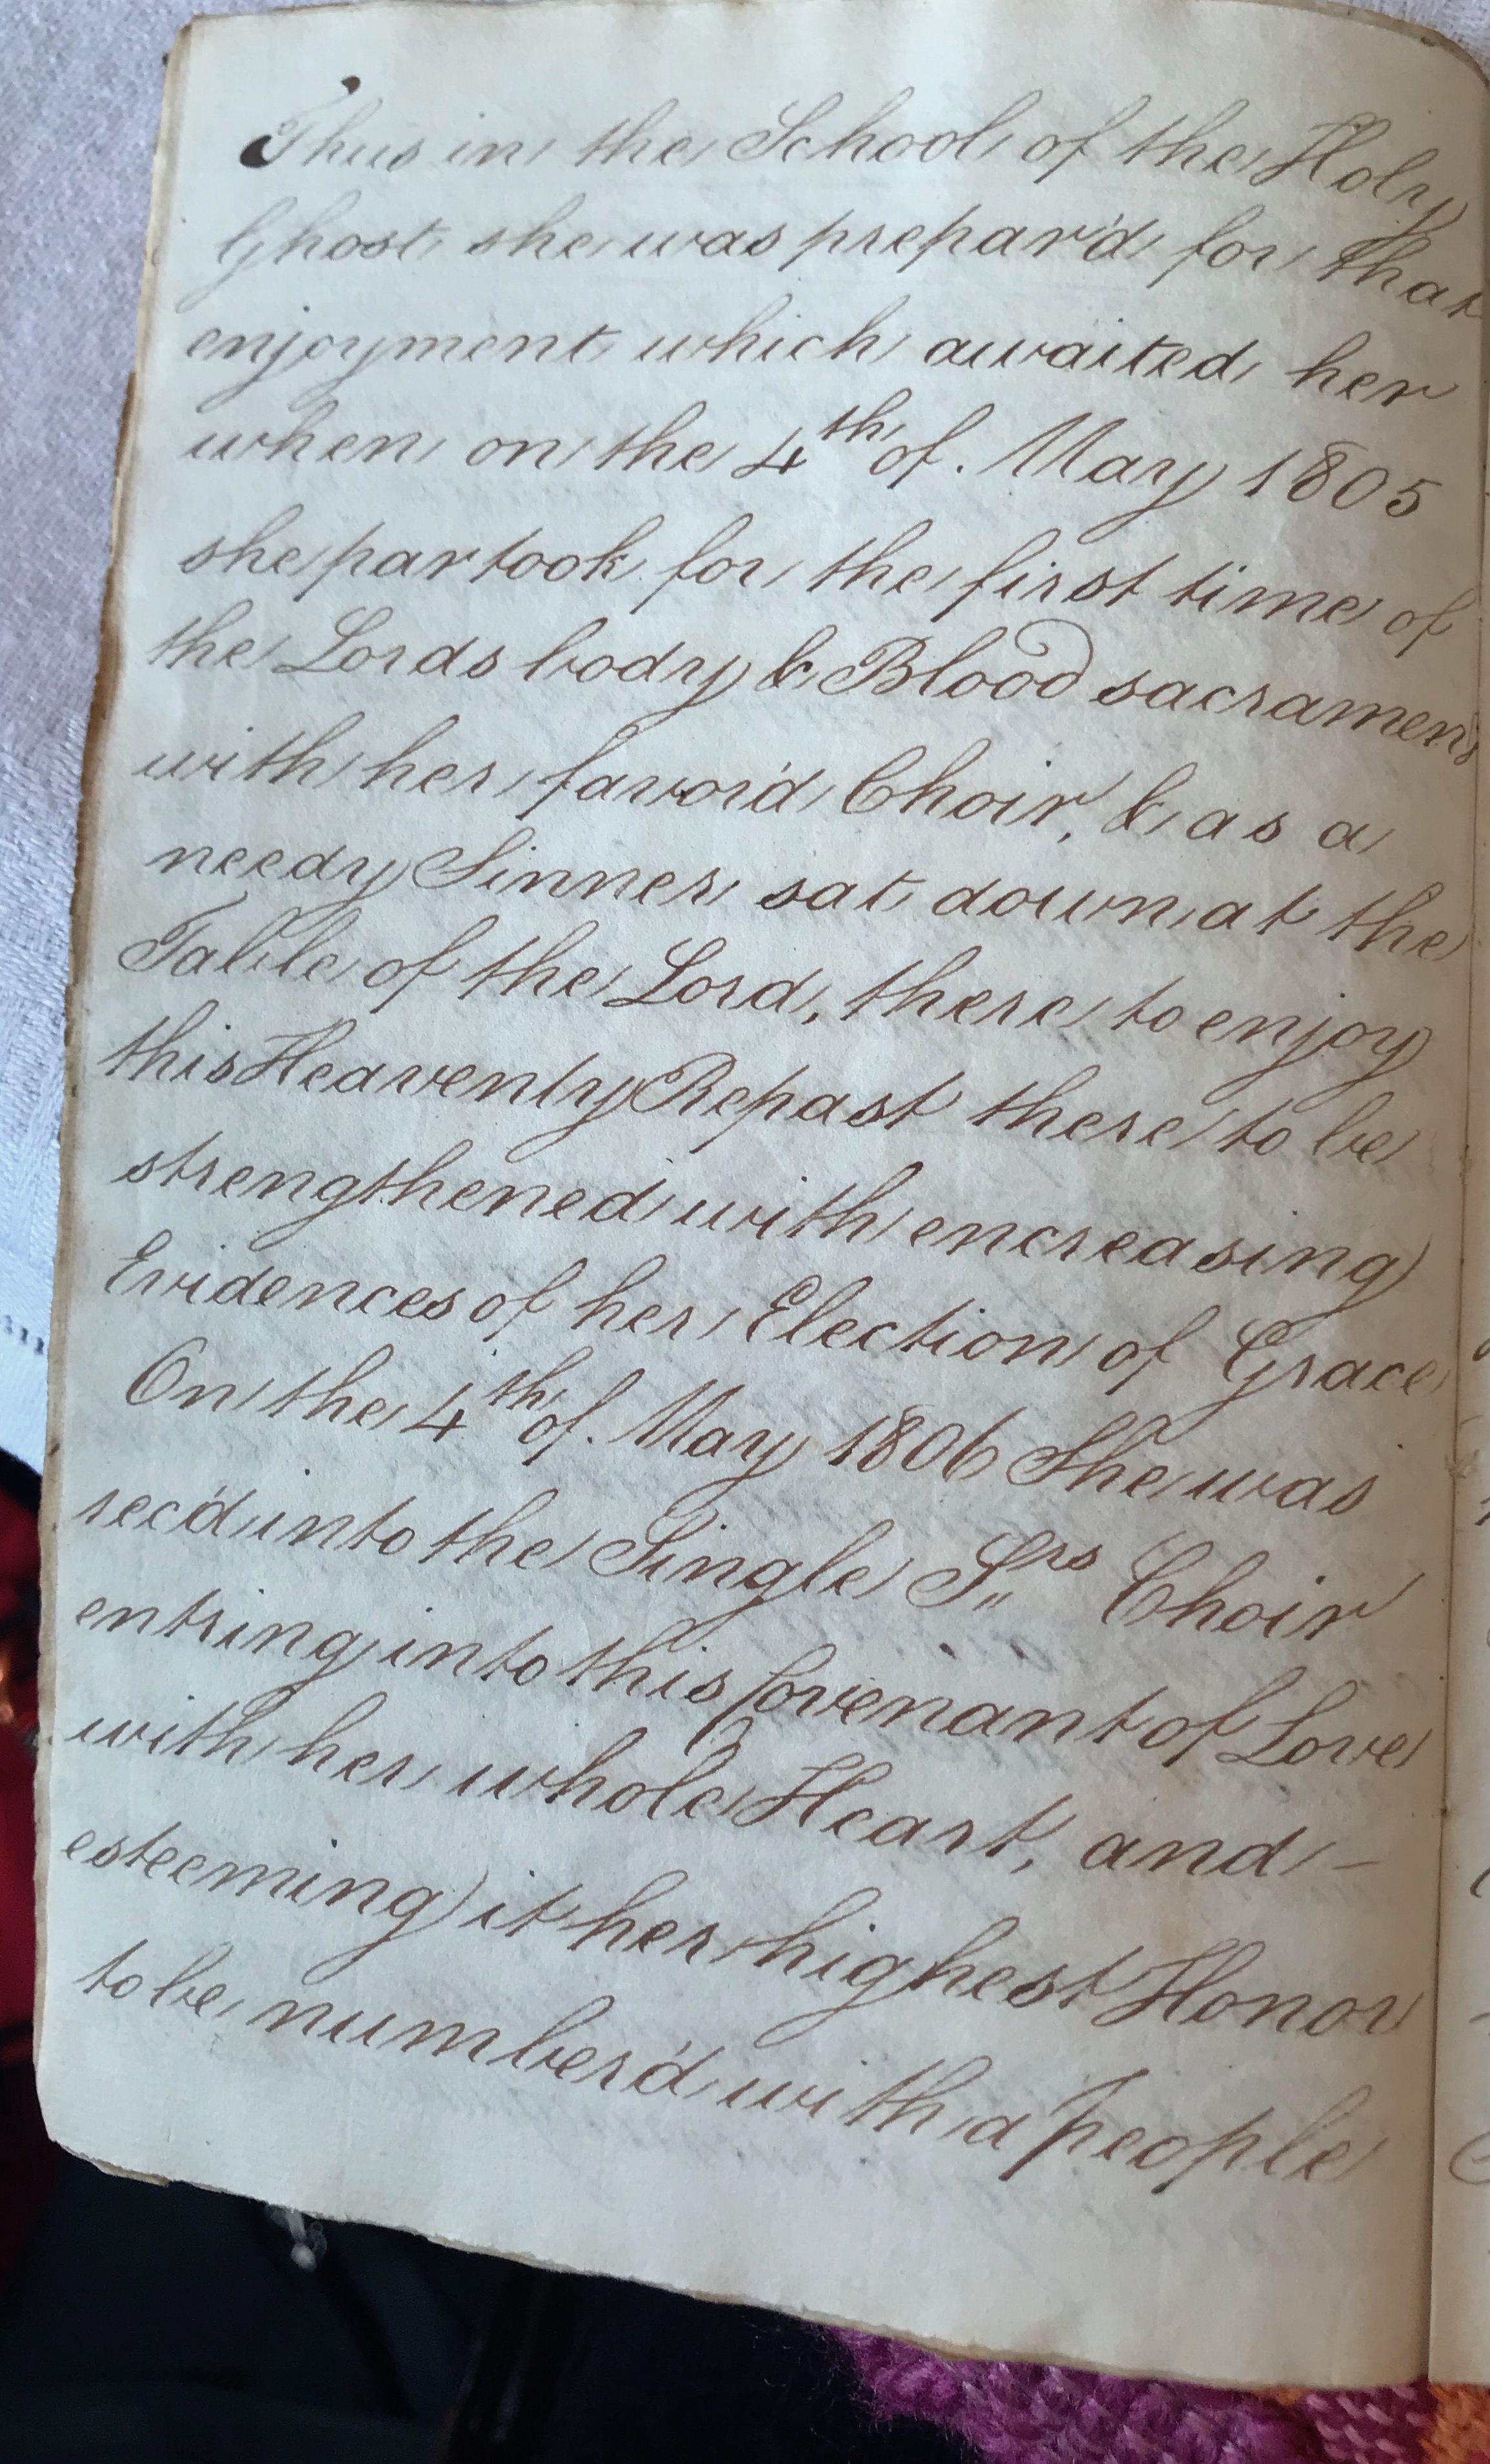 Thus in the School of the Holy
Ghost she was prepar'd for that
enjoyment which awaited her
when on the 4th of. May 1805
she partook for the first time of
the Lords body & Blood sacrament
with her favor'd Choir, & as a
needy Sinner sat down at the
Table of the Lord, there to enjoy
this Heavenly Repast there to be
strengthened with encreasing
Evidences of her Election of Grace
On the 4th of. May 1806 She was
rec'd into the Single S"rs Choir
entring into this Covenant of Love
with her whole Heart, and -
esteeming it her highest Honor
to be number'd with a People